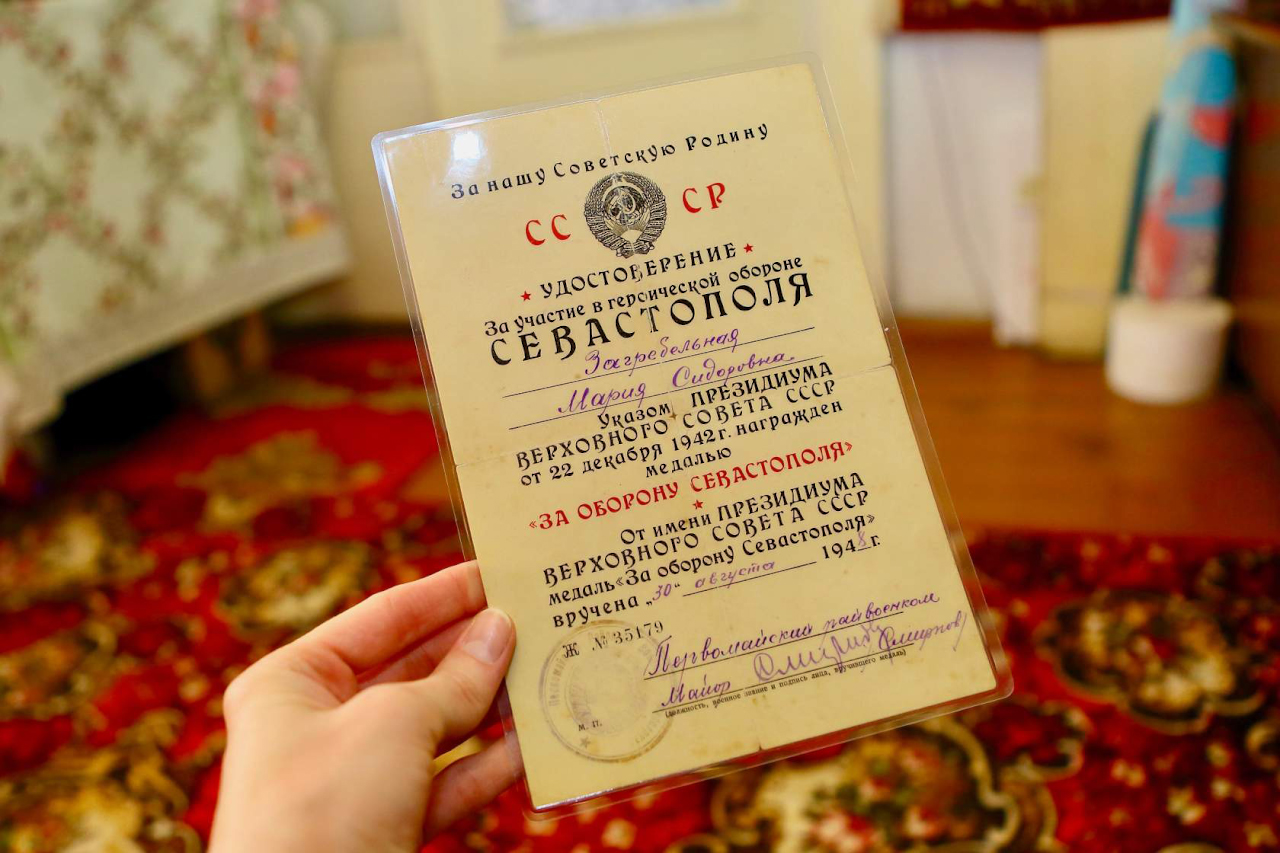 За нашу Советскую Родину
СС СР
УДОСТОВЕРЕНИЕ
За участие в героической обороне
СЕВАСТОПОЛЯ
Загребельная
Мария Сидоровна
Указом ПРЕЗИДИУМА
ВЕРХОВНОГО СОВЕТА СССР
от 22 декабря 1942 г. награжден
медалью
«ЗА ОБОРОНУ СЕВАСТОПОЛЯ»
От имени ПРЕЗИДИУМА
ВЕРХОВНОГО СОВЕТА СССР
медаль «За оборону Севастополя»
вручена „30“ августа 1948 г.
Ж № 35179
Первомайский райвоенком
Майор Смирнов
(должность, военное звание и подпись лица, вручившего медаль)
м. п.